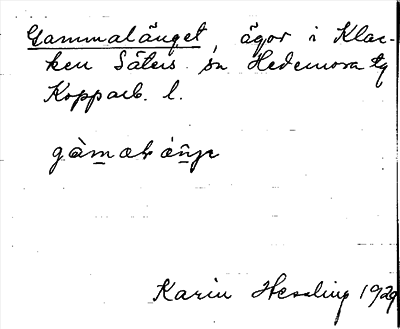 Gammalänget, ägor i Klac-
ken Säters sn Hedemora tg
Kopparb. l.
Karin Hessling 1929